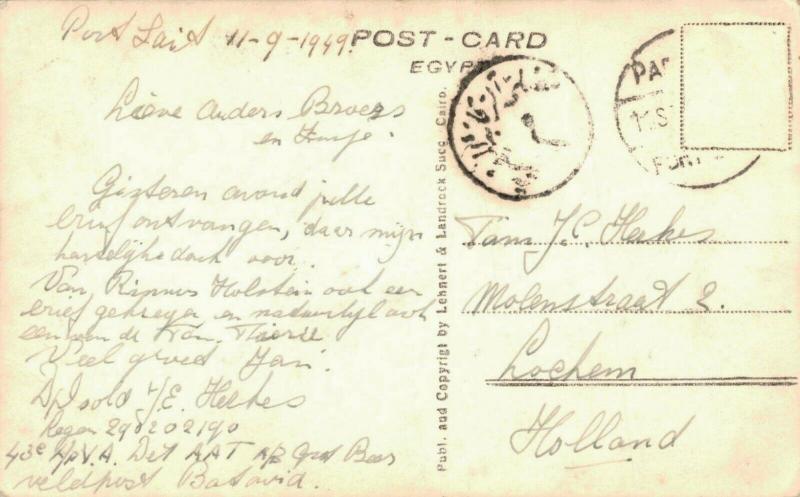 Port Said 11-9-1949.
POST-CARD
EGYPT
Lieve Ouders Broers
en Zusje.
Gisteren avond jullie
brief ontvangen, daar mijn
hartelijke dank voor.
Van Holstein ook een
brief gekregen en natuurlijk ook
een van de Fam.
Veel groed Jan.
Dpl sold J/E. Herkes
Regnr 290202190
43e Det AAT a/b Grote Beer
veldpost Batavia.
Publ. and Copyright by Lehnert & Landrock Succ. Cairo.
PA
FOR
Fam J.C. Herkes
Molenstraat 2.
Lochem
Holland